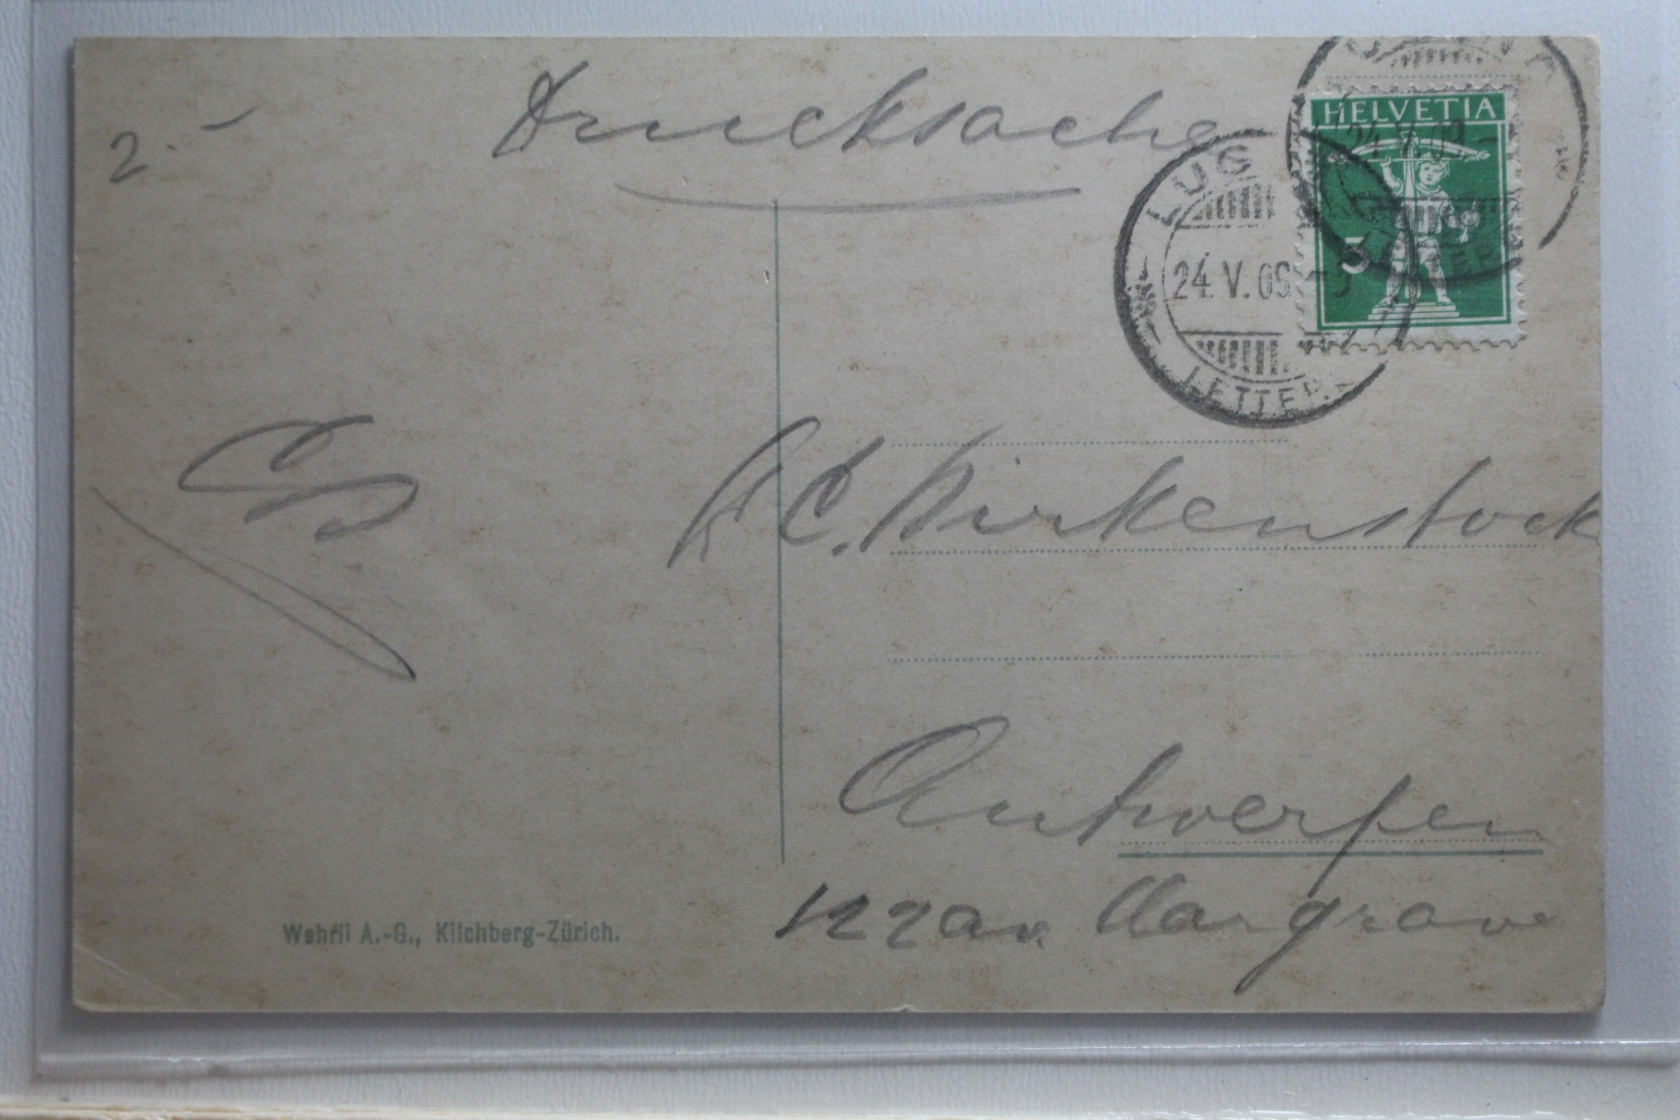 2.-
Drucksache
HELVETIA
5
LUG
24. V. 09.
LETTER
C. Kirkenstock
Antwerpen
122 av. Margrave
Wehrli A.-G., Kilchberg-Zürich.